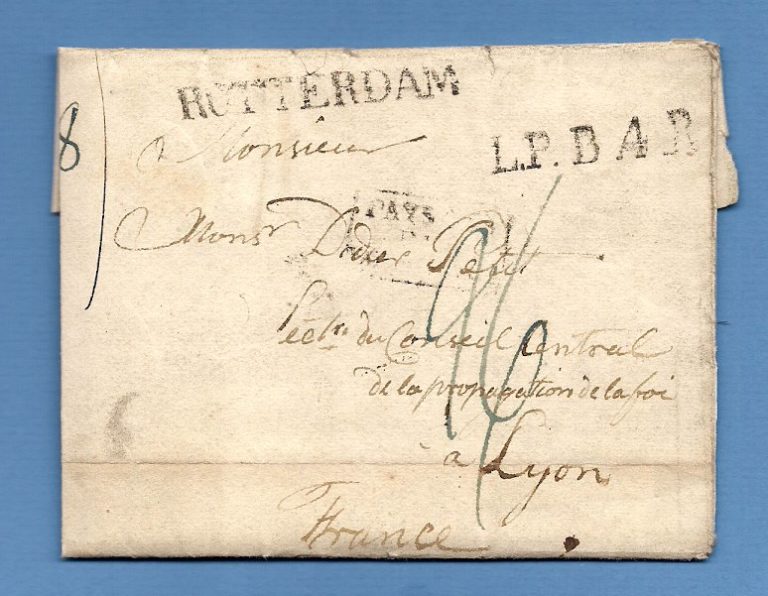 ROTTERDAM
L.P.B.4.R
8
a Monsieur
PAYS
Monsr Didier Petit
Secre. du Conseil Central
de la propagation de la foi
a Lyon
France